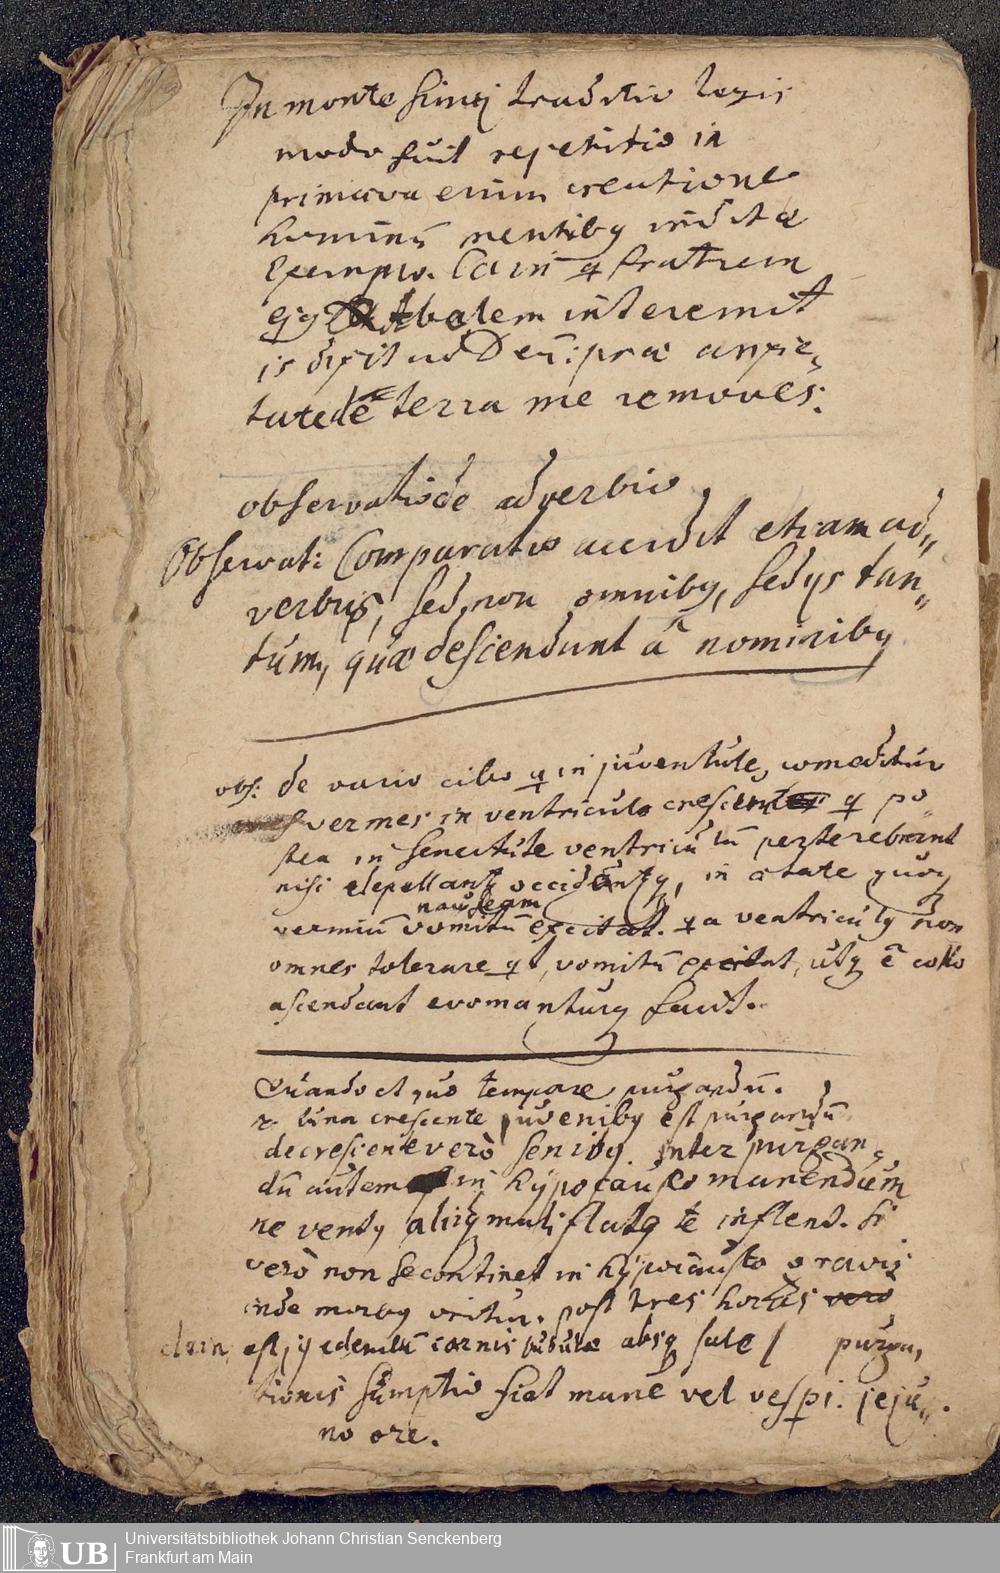 In monte Sinai traditio legis
modo fuit repetitio in
primaeva enim creatione
hominū mentiby indita
Exemplo. Cain q fratrem
ejy Abalem interemit
is dixit ad Deū: prae anxie,
tate dē terra me removes.
observatio de adverbio
Observat: Comparatio accidit etiam ad„
verbijs, sed non omniby, sed ys tan„
tum, quae descendunt â nominiby
obs: de vario cibo q in juventute, comeditur
vermes in ventriculo crescunt q po„
stea in senectute ventriculū perterebrant
nisi expellantur occidunty, in aetate quoq
nauseam
vermiū vomitū excitat. q a ventriculy non
omnes tolerare qt, vomitū excitat, utq ē collo
ascendant evomanturq sunt.
Quando et quo tempore purgandū.
r. luna crescente juveniby est purgandū.
decrescente verò seniby. Inter purgan„
dū autem in hypocausto manendum
ne venty aliisq mali flaty te inflent. Si
verò non se continet in hypocausto gravis
inde morby oritur. post tres horas
est edendū carnis bubulae absq sale / purga,
tionis sumptio fiat mane vel vespi. jeju„
no ore.
UB
Universitätsbibliothek Johann Christian Senckenberg
Frankfurt am Main